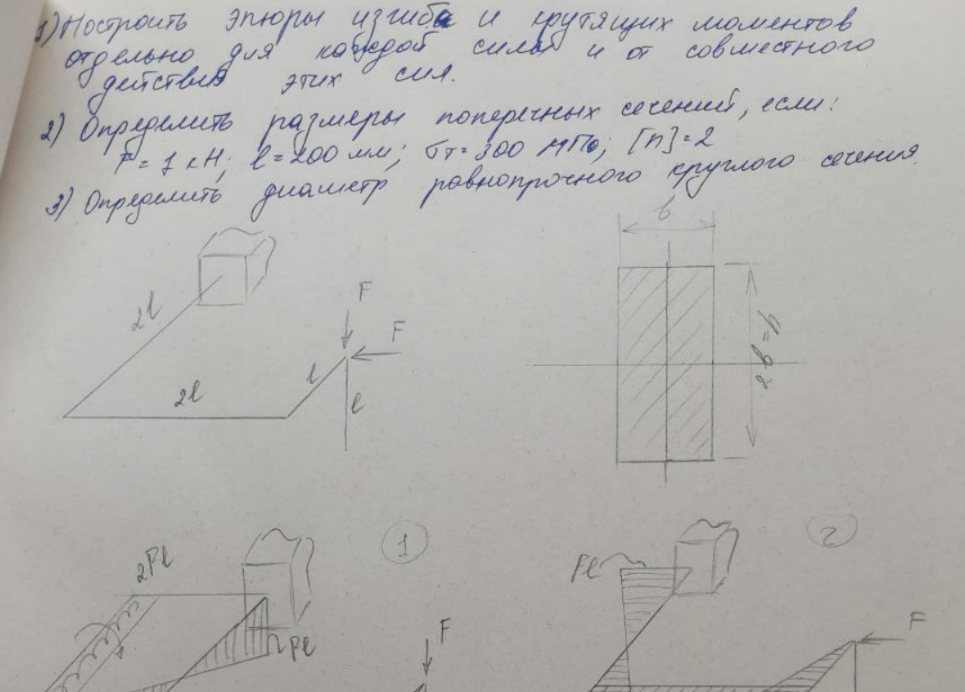 1) Построить эпюры изгиба и крутящих моментов
отдельно для каждой силы и от совместного
действия этих сил.
2) Определить размеры поперечных сечений, если:
F = 1 кН; l = 200 мм; σт = 300 МПа; [n] = 2
3) Определить диаметр равнопрочного круглого сечения.
b
2l
F
F
l
2l
l
1
2
2Fl
Fl
Fl
F
F